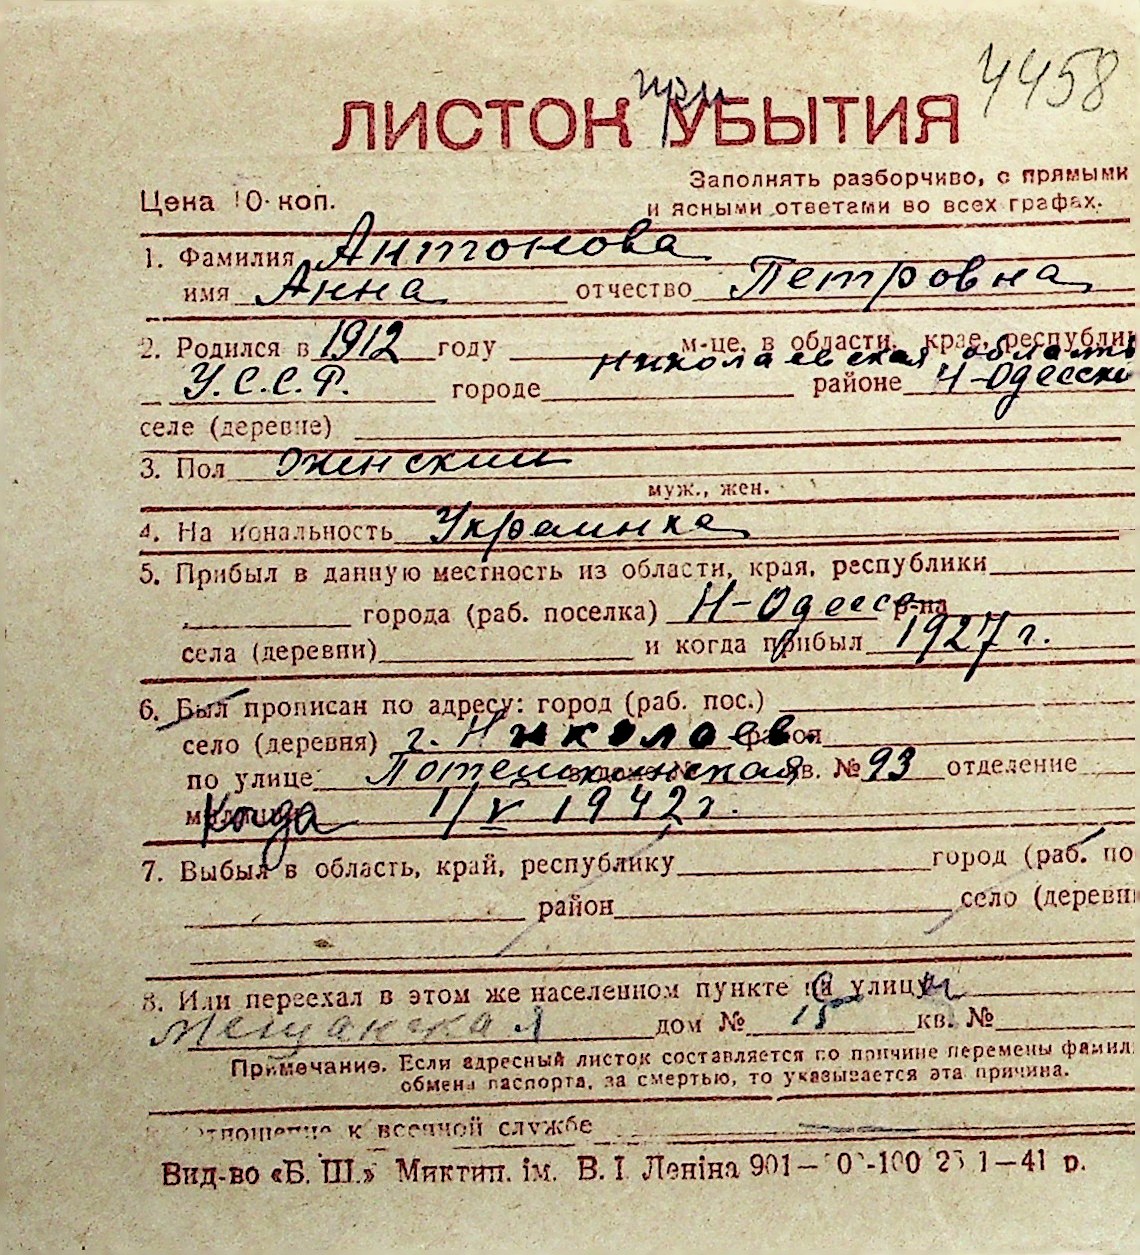 4458
при
ЛИСТОК УБЫТИЯ
Заполнять разборчиво, с прямыми
Цена 10 коп.
и ясными ответами во всех графах.
1. Фамилия Антонова
имя Анна отчество Петровна
2. Родился в 1912 году м-це, в области, крае, республи
Николаевская област
У.С.С.Р. городе районе Н-Одесско
селе (деревне)
3. Пол женский
муж., жен.
4. На иональность Украинка
5. Прибыл в данную местность из области, края, республики
города (раб. поселка) Н-Одесс р-на
села (деревни) и когда прибыл 1927 г.
6. Был прописан по адресу: город (раб. пос.)
село (деревня) г. Николаев. район
по улице Потемкинская кв. № 93 отделение
Когда 1/V 1942 г.
7. Выбыл в область, край, республику город (раб. по
район село (деревн
8. Или переехал в этом же населенном пункте с улицы
Мещанская дом № 15 кв. №
Примечание. Если адресный листок составляется по причине перемены фамил
обмена паспорта, за смертью, то указывается эта причина.
отношение к военной службе
Вид-во «Б. Ш.» Миктип. ім. В. І. Леніна 901— 0 -100 25 1—41 р.